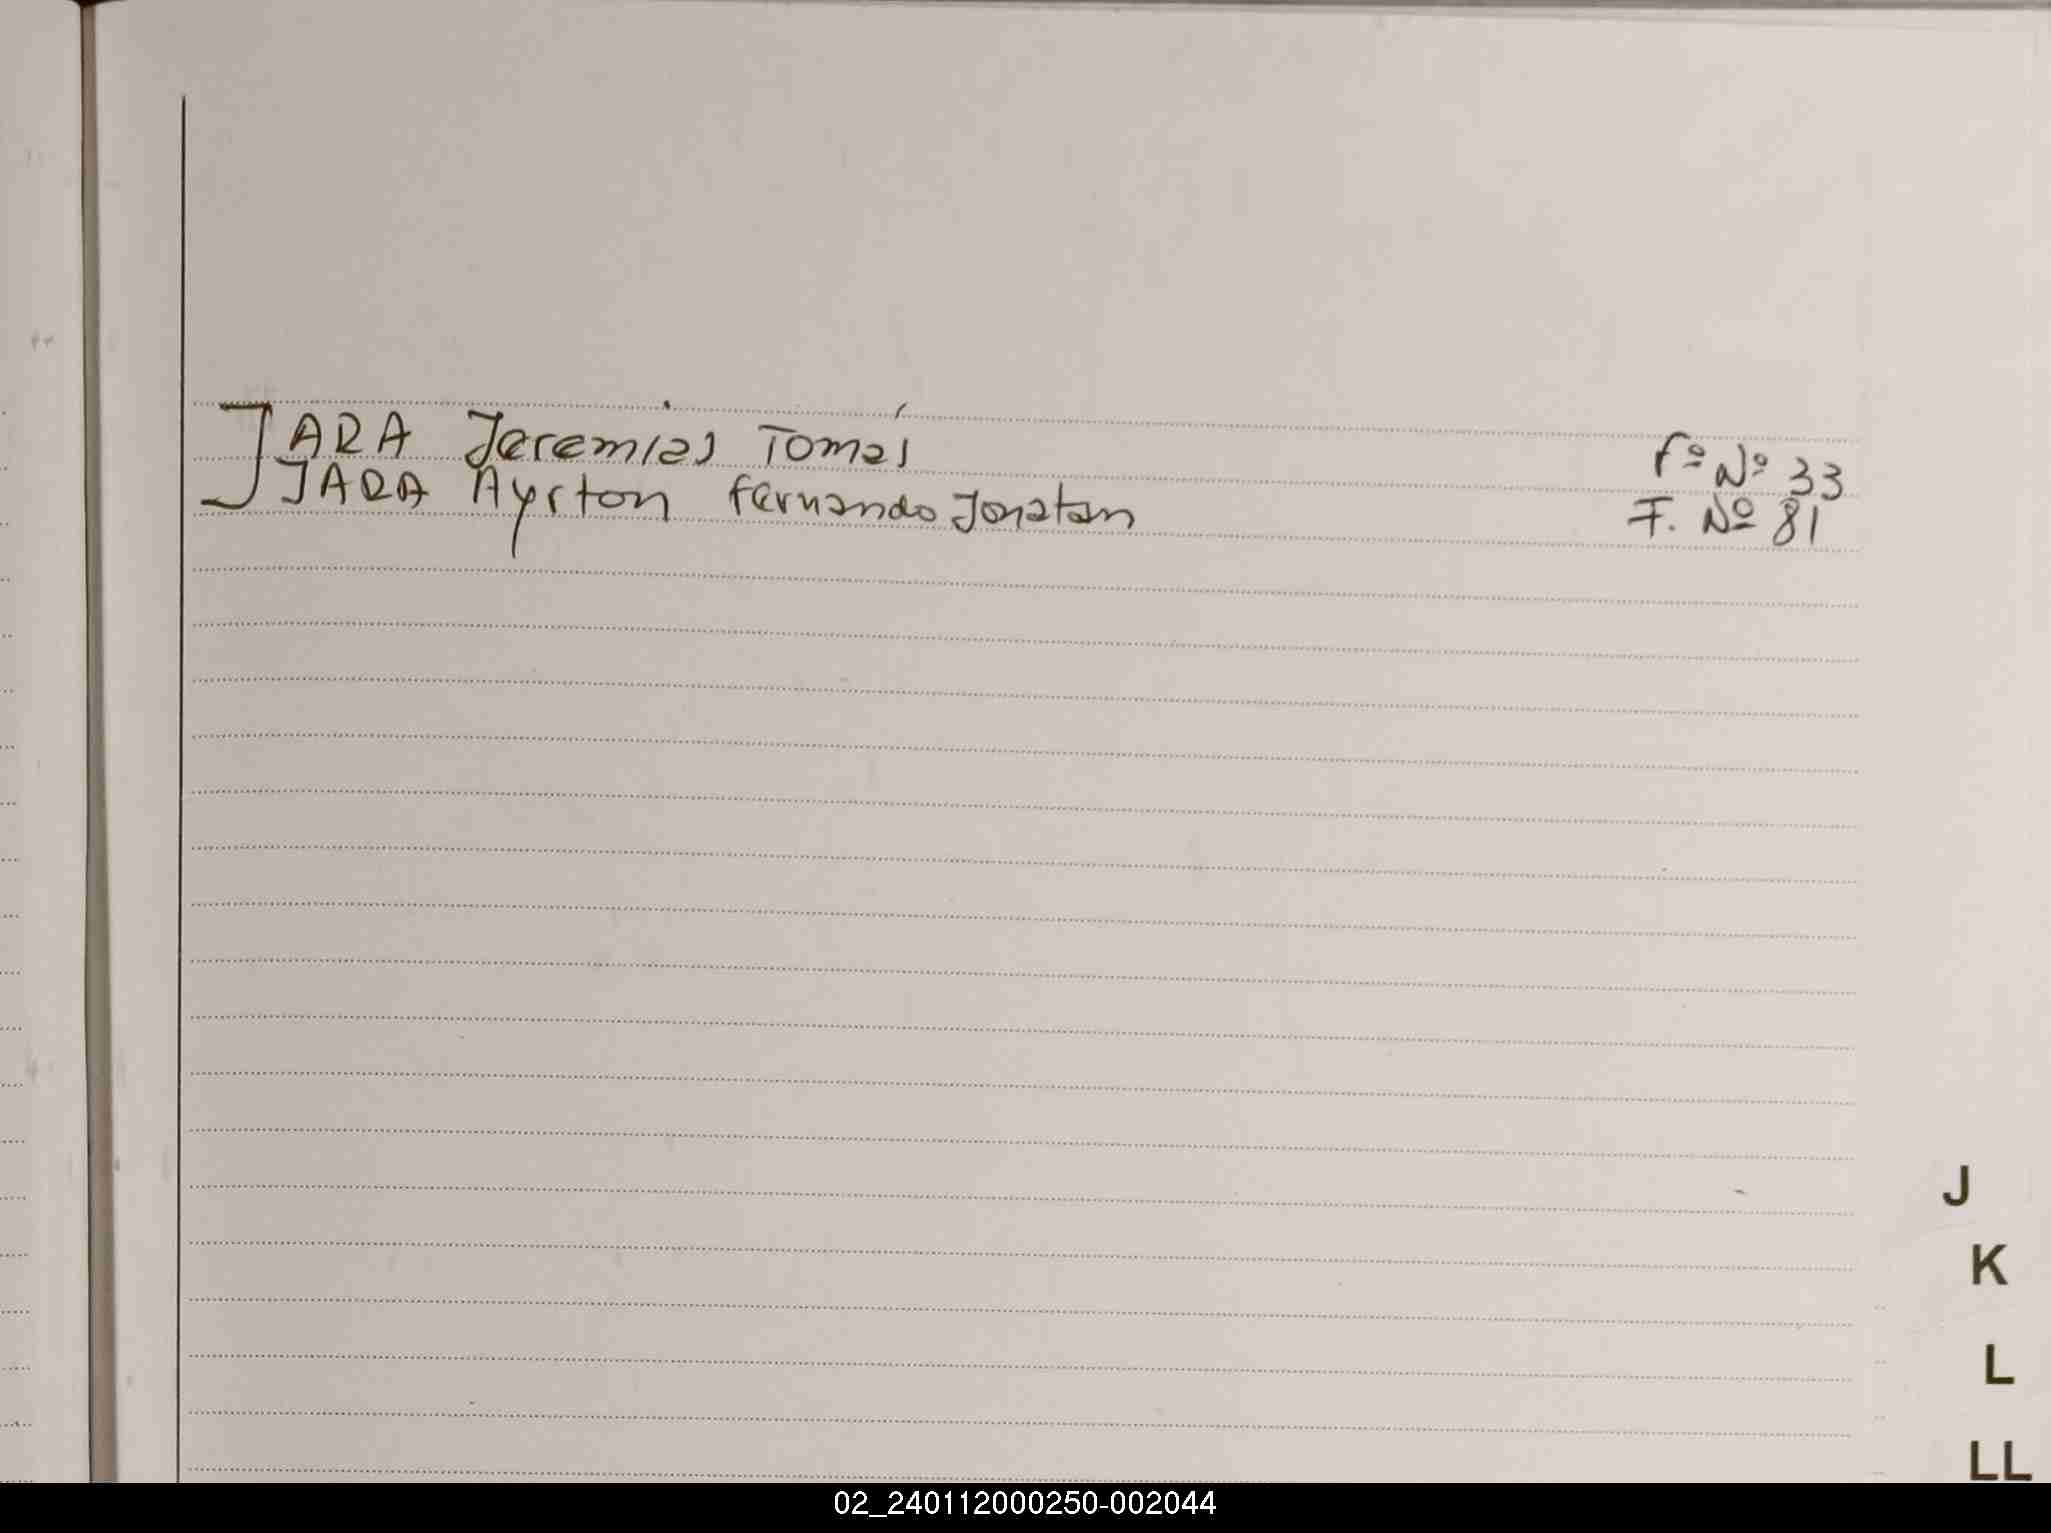 JARA Jeremias Tomás Fº Nº 33
JARA Ayrton Fernando Jonatan F. Nº 81
J
K
L
LL
02_240112000250-002044